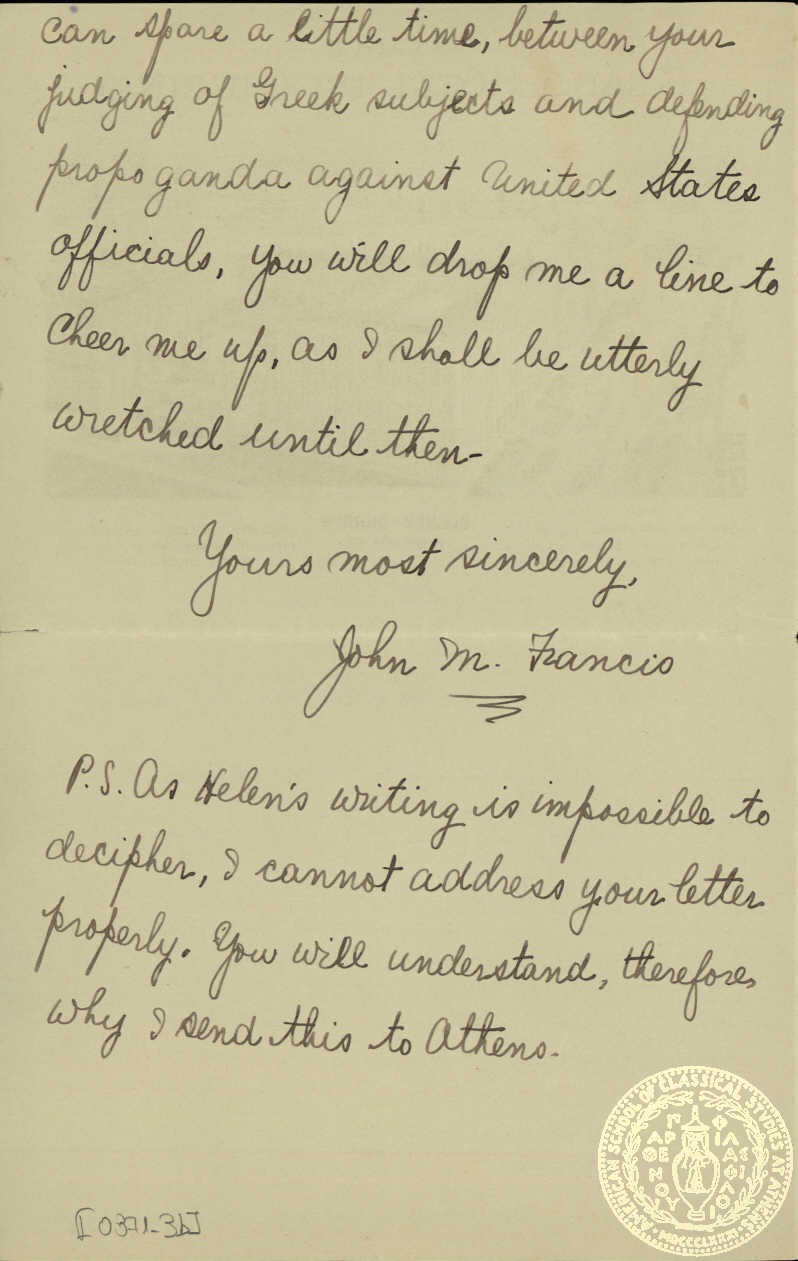 can spare a little time, between your
judging of Greek subjects and defending
propoganda against United States
officials, you will drop me a line to
cheer me up, as I shall be utterly
wretched until then-
Yours most sincerely,
John M. Francis
P.S. As Helen's writing is impossible to
decipher, I cannot address your letter
properly. You will understand, therefore,
why I send this to Athens.
[0371-3b]
AMERICAN SCHOOL OF CLASSICAL STUDIES AT ATHENS
MDCCCLXXXI
ΠΑΡΘΕΝΟΥ
ΦΙΛΑΣ ΦΙΛΟΙ